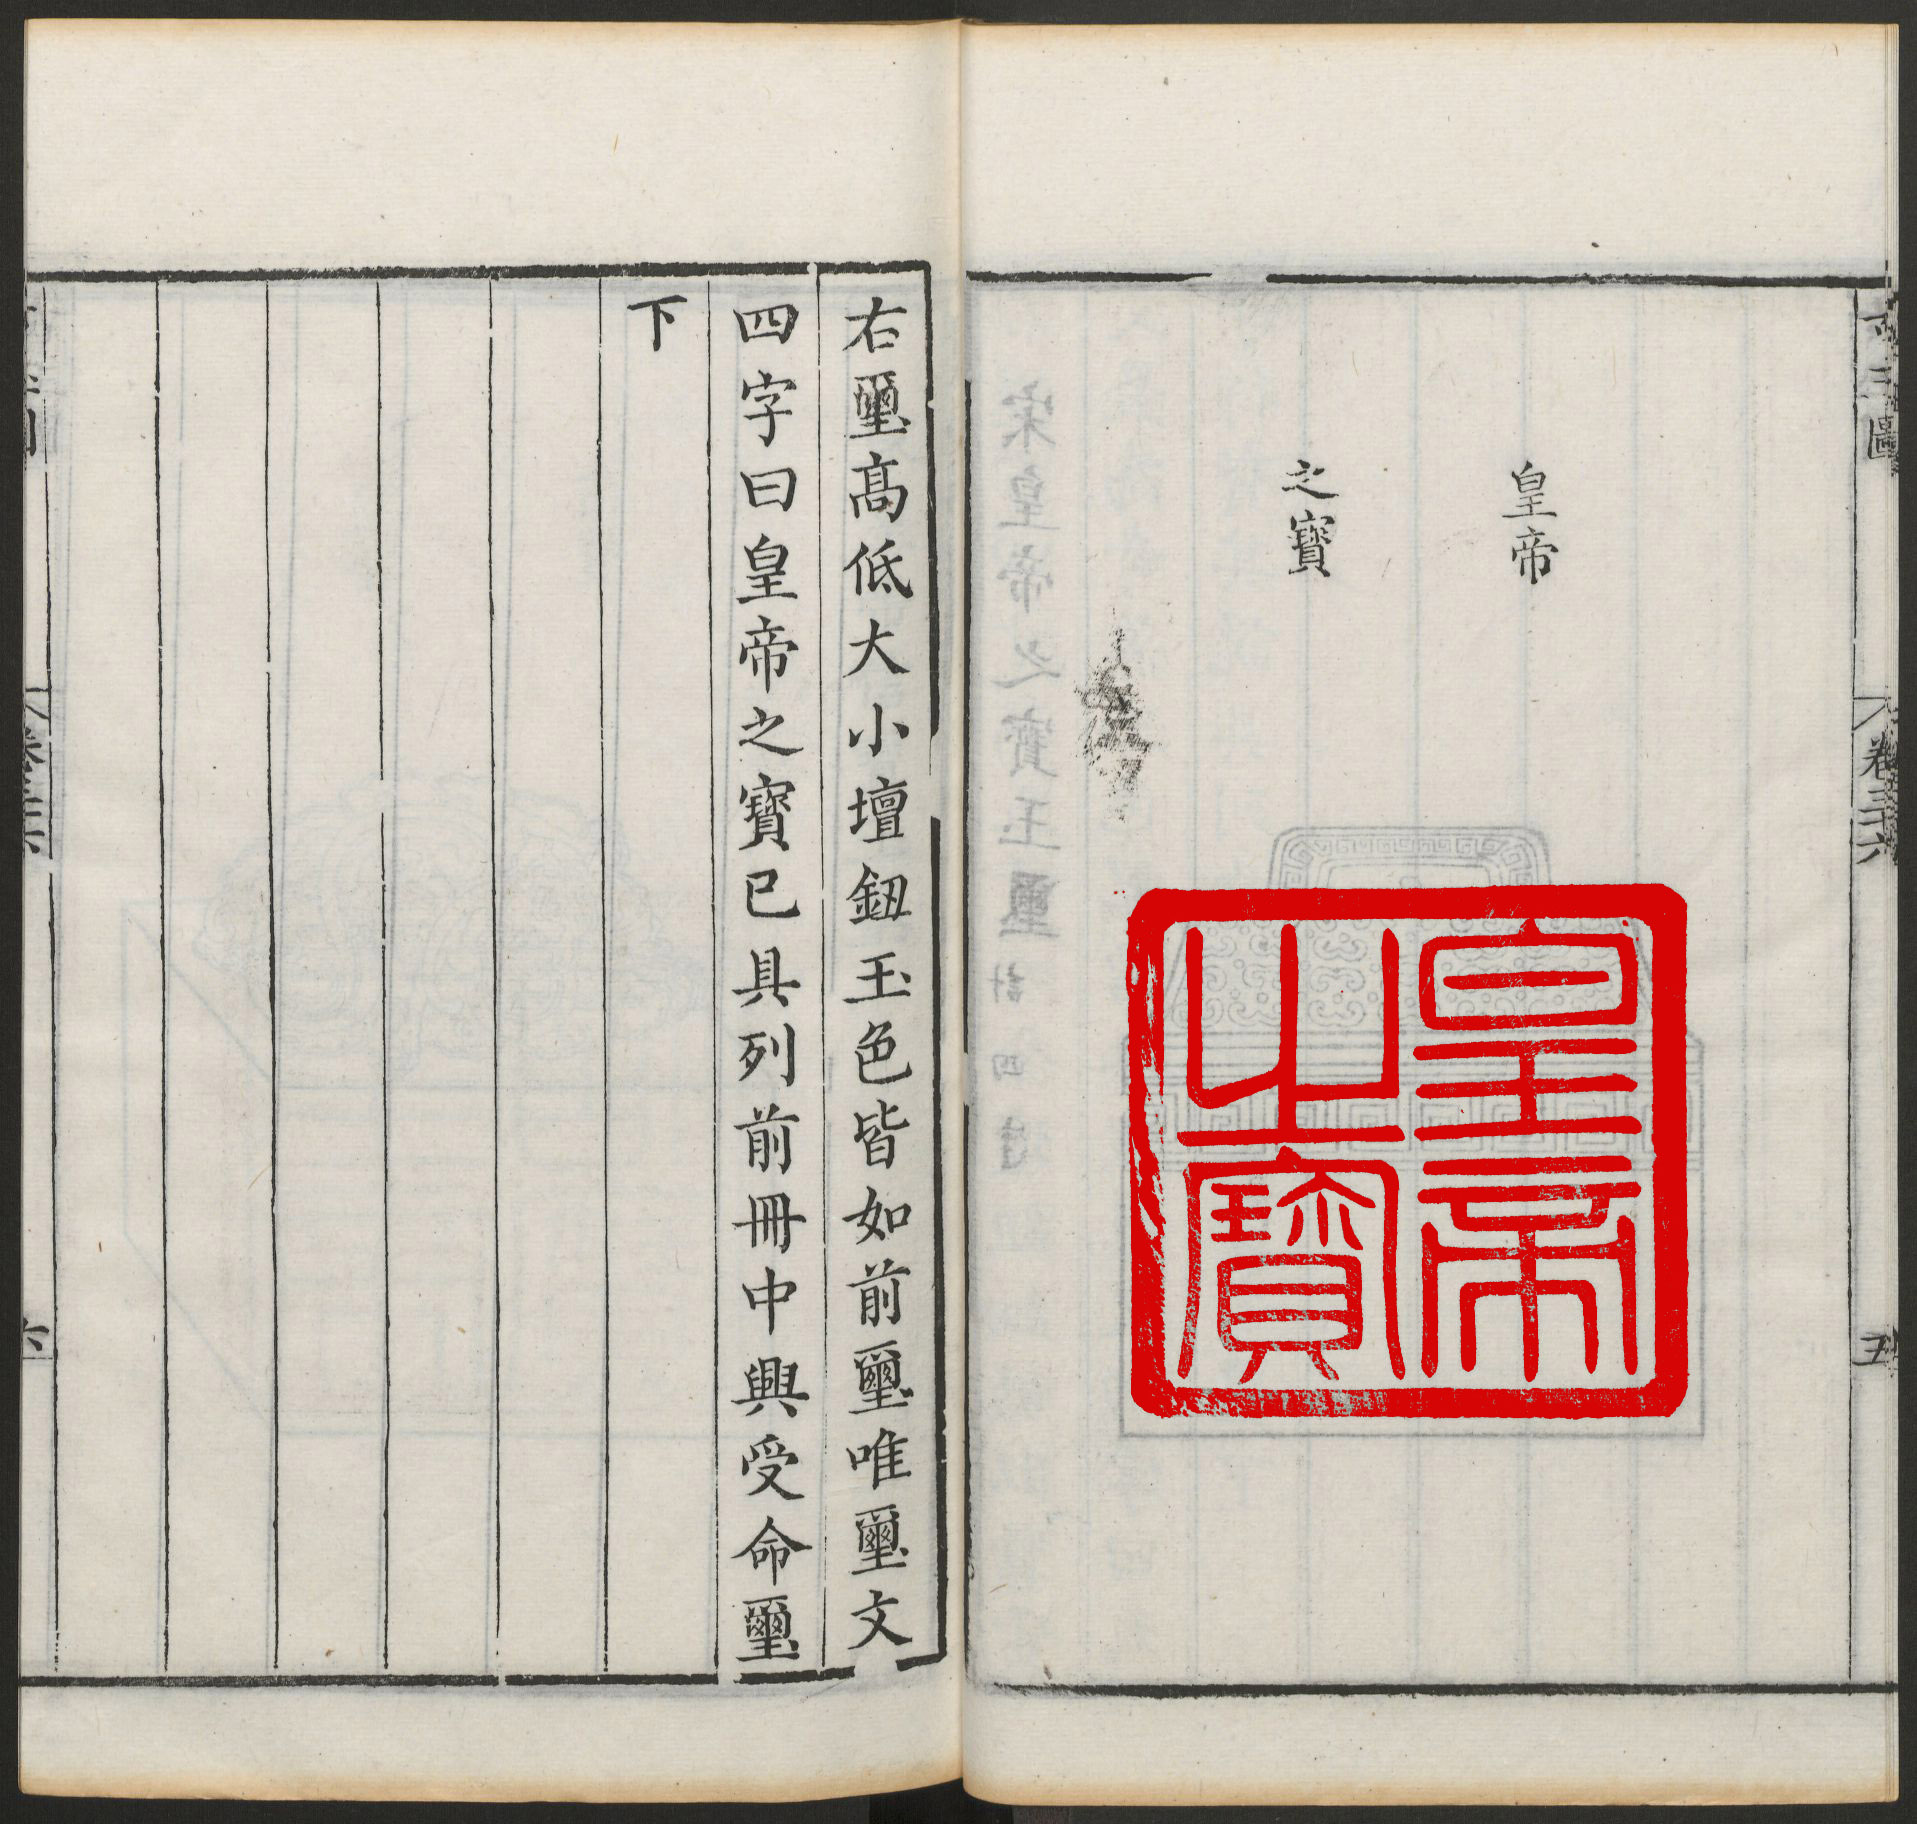 皇帝
之寶
皇帝
之寶
五
右璽高低大小壇鈕玉色皆如前璽唯璽文
四字曰皇帝之寶已具列前冊中興受命璽
下